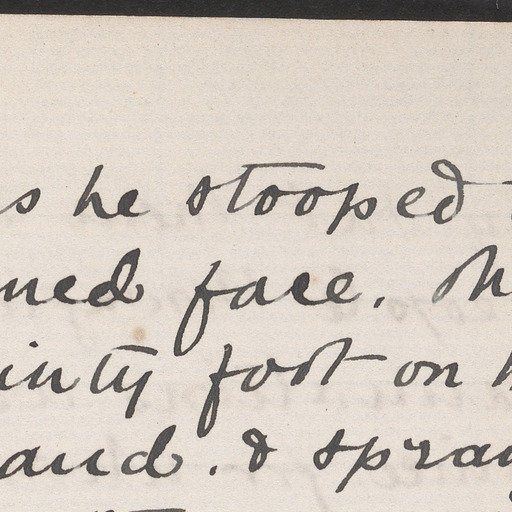 s he stooped
ned face. Sh
inty foot on h
and. & spran